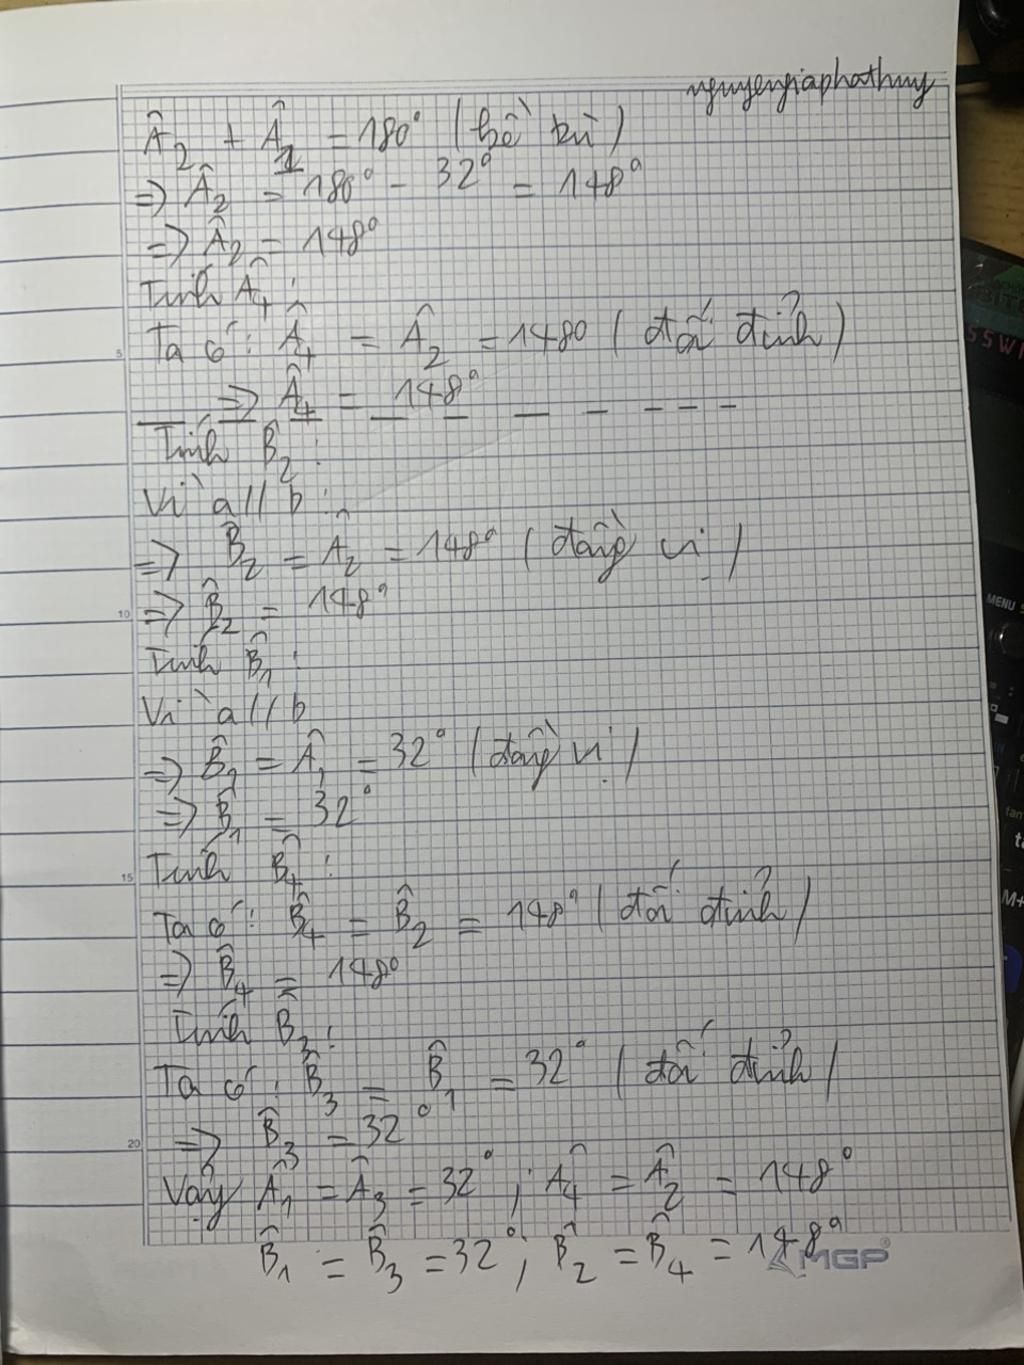 nguyengiaphathuy
Â₂ + Â₁ = 180° (kề bù)
=> Â₂ = 180° - 32° = 148°
=> Â₂ = 148°
Tính Â₄ :
Ta có: Â₄ = Â₂ = 1480 (đối đỉnh)
=> Â₄ = 148°
Tính B̂₂ :
Vì a // b :
=> B̂₂ = Â₂ = 148° (đồng vị)
=> B̂₂ = 148°
Tính B̂₁ :
Vì a // b
=> B̂₁ = Â₁ = 32° (đồng vị)
=> B̂₁ = 32°
Tính B̂₄ :
Ta có: B̂₄ = B̂₂ = 148° (đối đỉnh)
=> B̂₄ = 148°
Tính B̂₃ :
Ta có : B̂₃ = B̂₁ = 32° (đối đỉnh)
=> B̂₃ = 32°
Vậy Â₁ = Â₃ = 32° ; Â₄ = Â₂ = 148°
B̂₁ = B̂₃ = 32° ; B̂₂ = B̂₄ = 148°
MGP
5
10
15
20
MENU
tan
M+